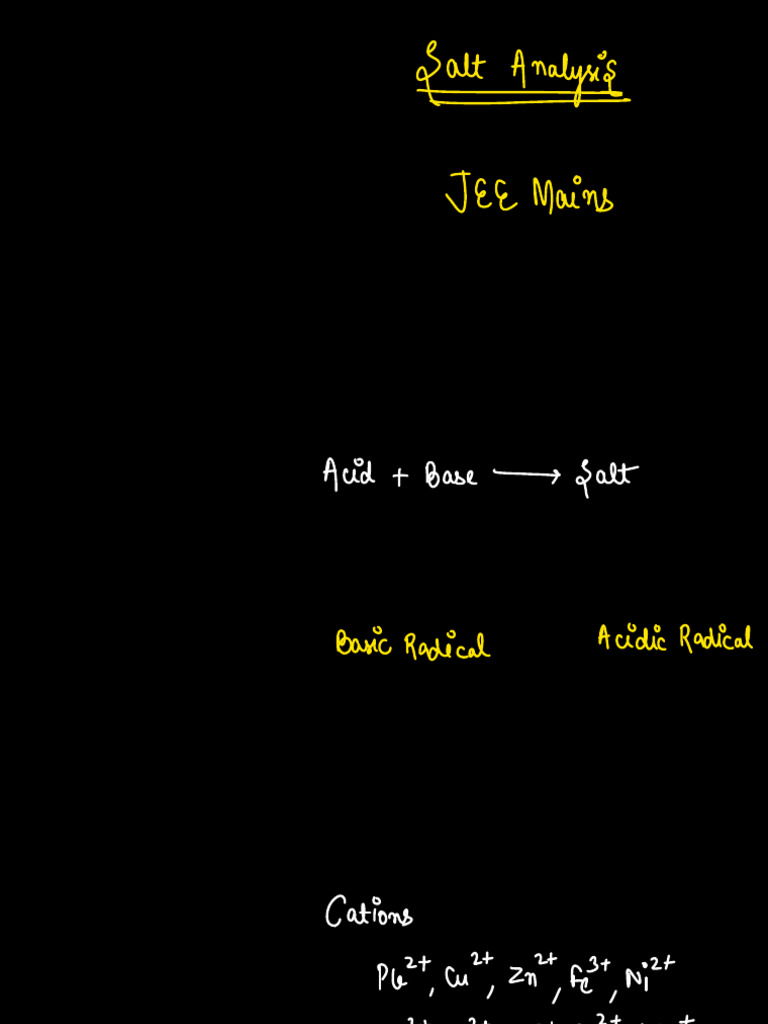 Salt Analysis
JEE Mains
Acid + Base ⟶ Salt
Basic Radical Acidic Radical
Cations
Pb²⁺, Cu²⁺, Zn²⁺, Fe³⁺, Ni²⁺